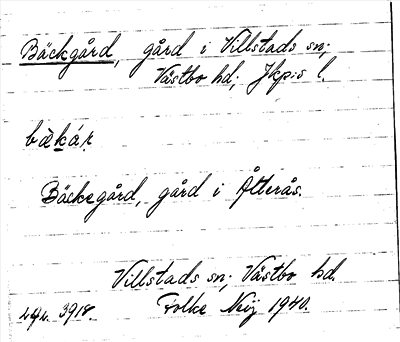 Bäckgård, gård i Villstads sn;
Västbo hd; Jkp:s l.
bäkár.
Bäckegård, gård i Åtterås.
Villstads sn; Västbo hd.
3918 Folke Neij 1940.